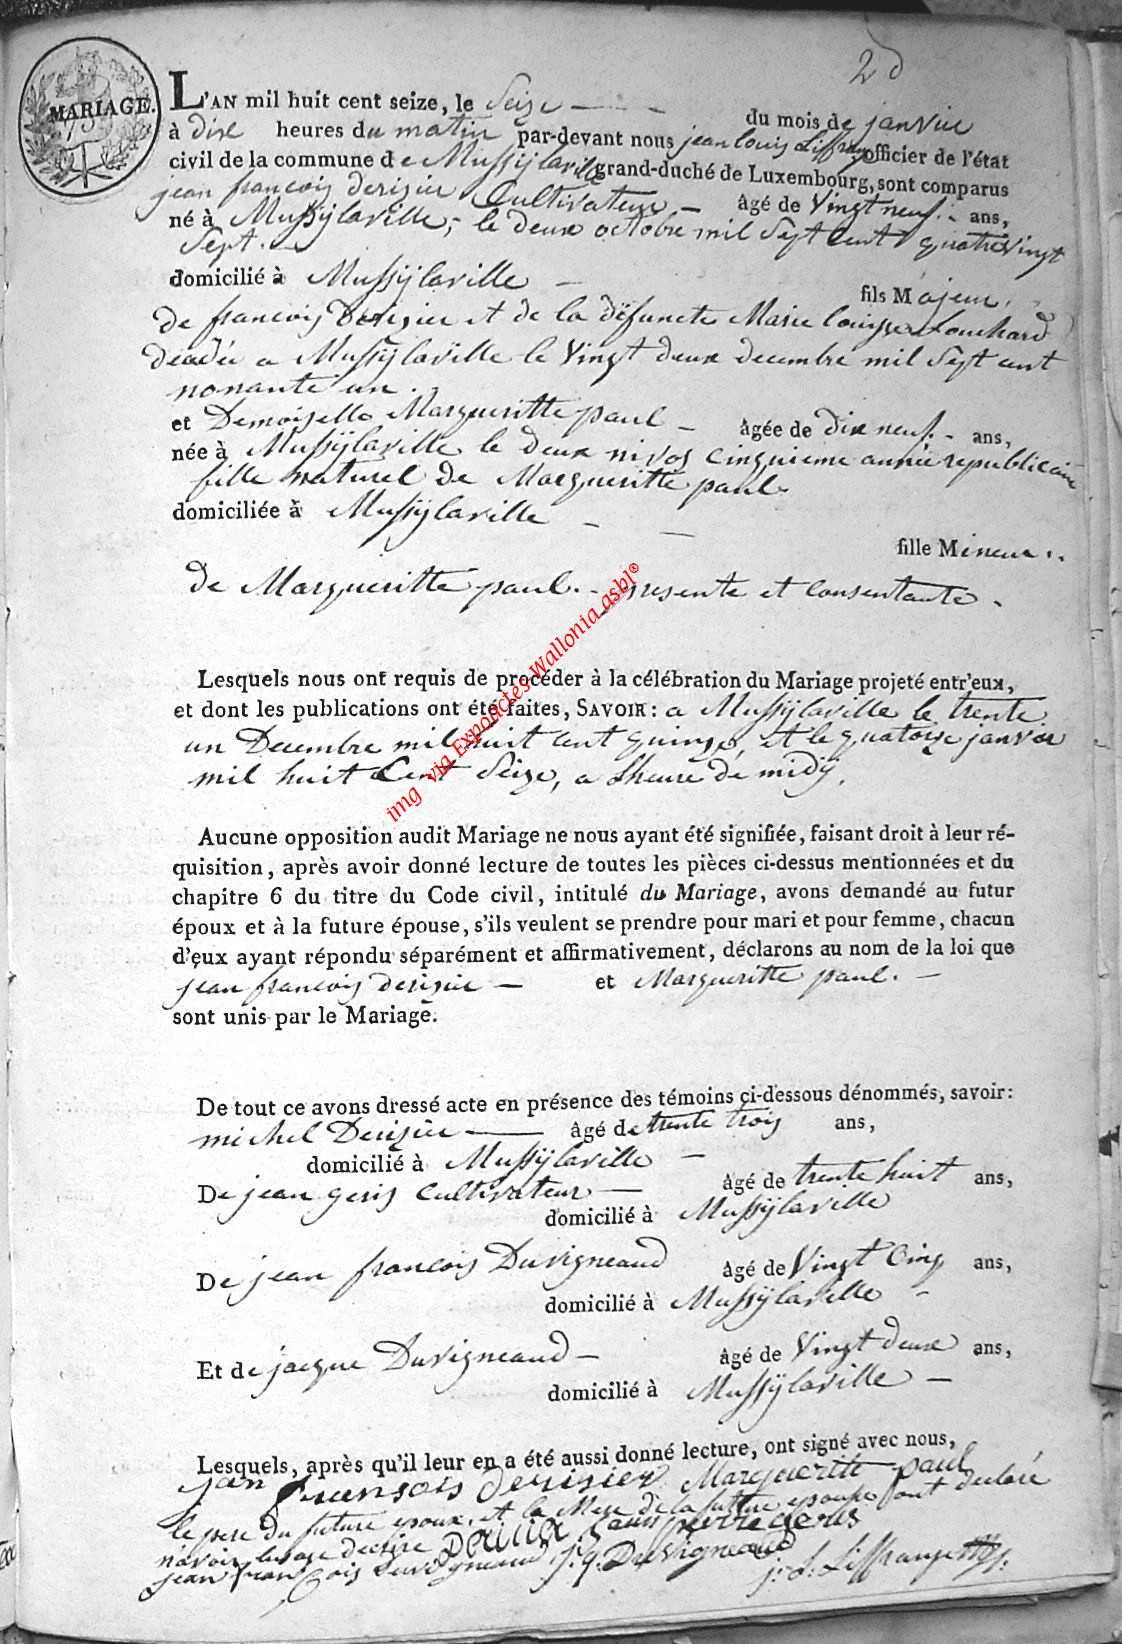 2d
MARIAGE.
L'AN mil huit cent seize, le Seize du mois de janvier
à dix heures du matin par-devant nous jean louis Liffrange officier de l'état
civil de la commune de Mussÿlaville grand-duché de Luxembourg, sont comparus
jean francois derisier Cultivateur âgé de vingt neuf ans,
né à Mussÿlaville, le deux octobre mil sept cent quatre vingt
Sept.
domicilié à Mussÿlaville
fils Majeur.
de francois Derisier et de la défuncte Marie louisse Louchard
décédée a Mussÿlaville le vingt deux decembre mil sept cent
nonante un.
et Demoiselle Margueritte paul âgée de dix neuf ans,
née à Mussÿlaville le deux nivos cinquieme année republicaine
fille naturel de Margueritte paul
domiciliée à Mussÿlaville
fille Mineur.
de Margueritte paul. presente et consentante.
img via Expoactes-Wallonia asbl®
Lesquels nous ont requis de procéder à la célébration du Mariage projeté entr'eux,
et dont les publications ont été faites, SAVOIR: a Mussÿlaville le trente
un Decembre mil huit cent quinze, et le quatorze janvier
mil huit Cent Seize, a Lheure de midÿ,
Aucune opposition audit Mariage ne nous ayant été signifiée, faisant droit à leur ré-
quisition, après avoir donné lecture de toutes les pièces ci-dessus mentionnées et du
chapitre 6 du titre du Code civil, intitulé du Mariage, avons demandé au futur
époux et à la future épouse, s'ils veulent se prendre pour mari et pour femme, chacun
d'eux ayant répondu séparément et affirmativement, déclarons au nom de la loi que
jean francois derisier et Margueritte paul.
sont unis par le Mariage.
De tout ce avons dressé acte en présence des témoins ci-dessous dénommés, savoir:
michel Derisier âgé de trente trois ans,
domicilié à Mussÿlaville
De jean geris cultivateur âgé de trente huit ans,
domicilié à Mussÿlaville
De jean francois Duvigneaud âgé de Vingt Cinq ans,
domicilié à Mussÿlaville
Et de jacque Duvigneaud âgé de Vingt deux ans,
domicilié à Mussÿlaville
Lesquels, après qu'il leur en a été aussi donné lecture, ont signé avec nous,
jan fransois derisier Marguerite paul
le pere du futur epoux, et la Mere de la future epouse ont declaré
n'avoir lusage decrire
jean francois duvigneaud j. q. Duvigneaud j: L: Liffrange